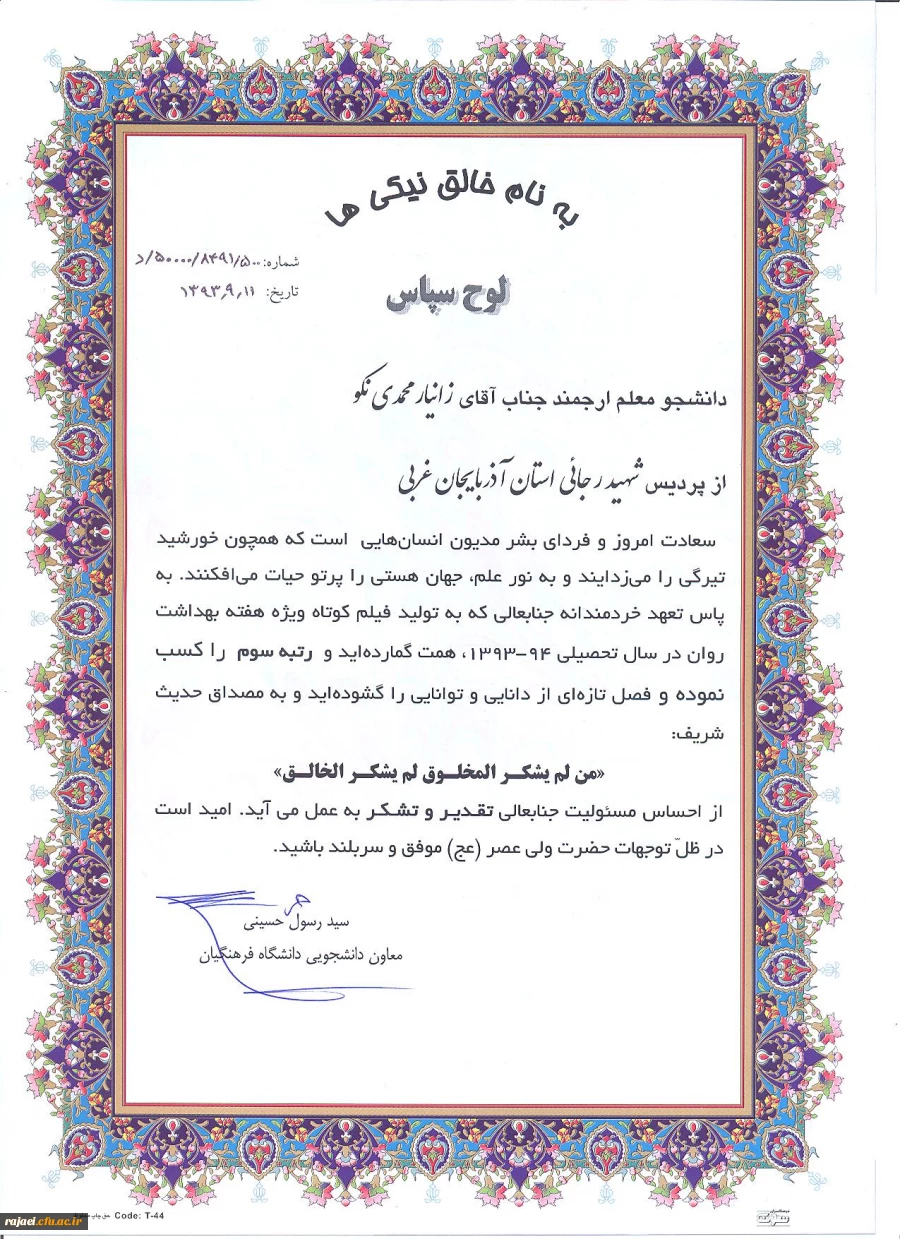 به نام خالق نیکی ها
شماره: ۵۰۰۰۰/۸۴۹۱/۵۰۰/د
تاریخ: ۱۳۹۳٫۹٫۱۱
لوح سپاس
دانشجو معلم ارجمند جناب آقای زانیار محمدی نکو
از پردیس شهید رجائی استان آذربایجان غربی
سعادت امروز و فردای بشر مدیون انسان‌هایی است که همچون خورشید
تیرگی را می‌زدایند و به نور علم، جهان هستی را پرتو حیات می‌افکنند. به
پاس تعهد خردمندانه جنابعالی که به تولید فیلم کوتاه ویژه هفته بهداشت
روان در سال تحصیلی ۹۴-۱۳۹۳، همت گمارده‌اید و رتبه سوم را کسب
نموده و فصل تازه‌ای از دانایی و توانایی را گشوده‌اید و به مصداق حدیث
شریف:
«من لم یشکر المخلوق لم یشکر الخالق»
از احساس مسئولیت جنابعالی تقدیر و تشکر به عمل می آید. امید است
در ظلّ توجهات حضرت ولی عصر (عج) موفق و سربلند باشید.
سید رسول حسینی
معاون دانشجویی دانشگاه فرهنگیان
rajaei.cfu.ac.ir
Code: T-44 حق چاپ